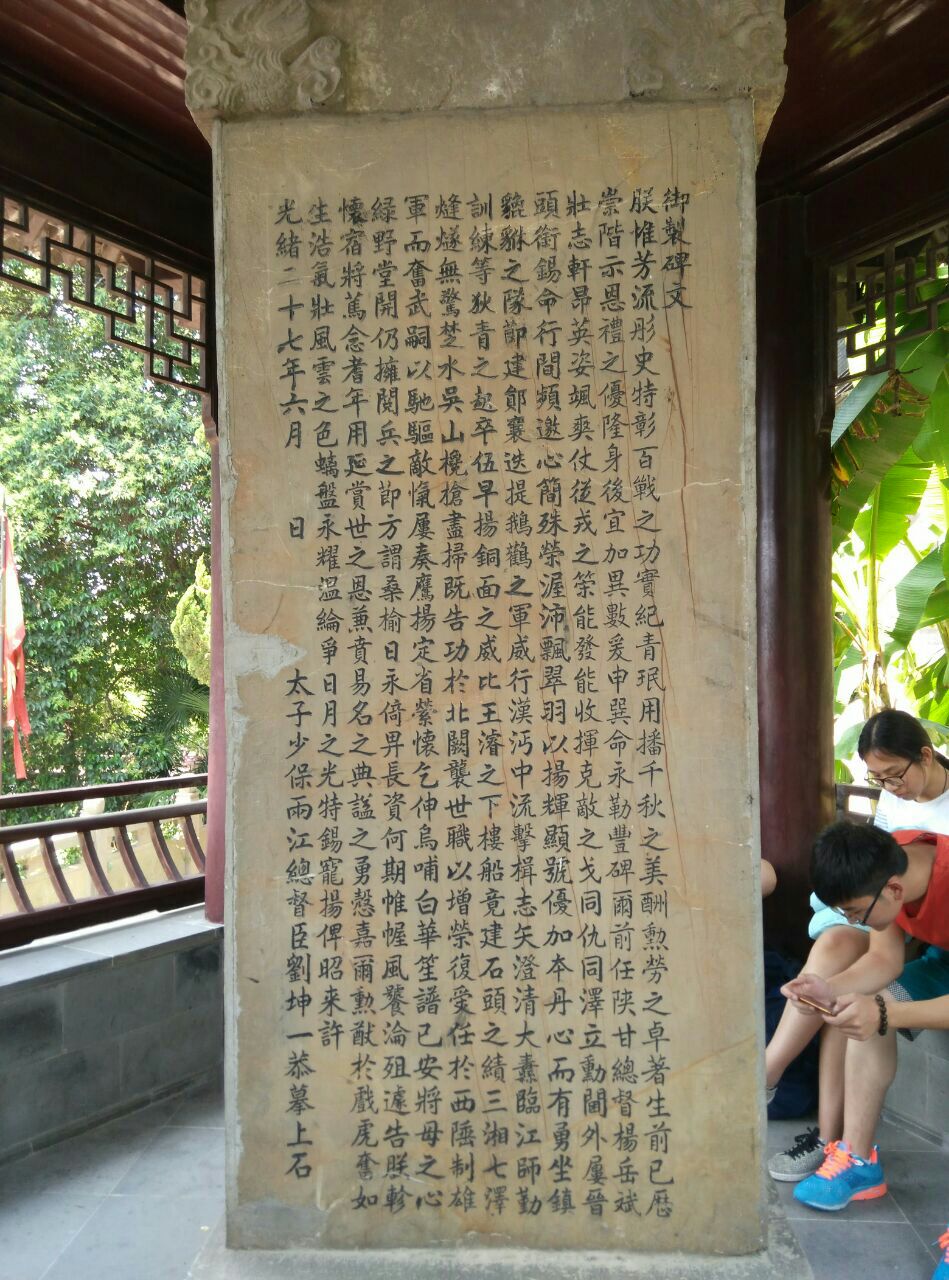 御製碑文
朕惟芳流彤史特彰百戰之功實紀青珉用播千秋之美酬勲勞之卓著生前已歷
崇階示恩禮之優隆身後宜加異數爰申巽命永勒豐碑爾前任陕甘總督楊岳斌
壯志軒昂英姿颯爽仗從戎之䇿能發能收揮克敵之戈同仇同澤立勳閫外屢晉
頭銜錫命行間頻邀心簡殊榮渥沛飄翠羽以揚輝顯號優加夲丹心而有勇坐鎮
貔貅之隊節建鄖襄迭提鵝鸛之軍威行漢沔中流擊楫志矢澄清大纛臨江師勤
訓練等狄青之起卒伍早揚銅面之威比王濬之下樓船竟建石頭之績三湘七澤
燧無驚楚水吳山欃搶盡掃既告功於北闕襲世職以增榮復爰任於西陲制雄
軍而奮武嗣以馳驅敵愾屢奏鷹揚定省縈懷乞伸烏哺白華笙譜已安將母之心
緑野堂開仍擁閱兵之節方謂桑榆日永倚畀長資何期帷幄風飇淪殂遽告朕軫
懷宿將篤念耆年用延賞世之恩兼賁易名之典諡之勇慤嘉爾勲猷於戲虎奮如
生浩氣壯風雲之色螭盤永耀溫綸爭日月之光特錫寵揚俾昭來許
光緒二十七年六月 日 太子少保兩江總督臣劉坤一恭摹上石